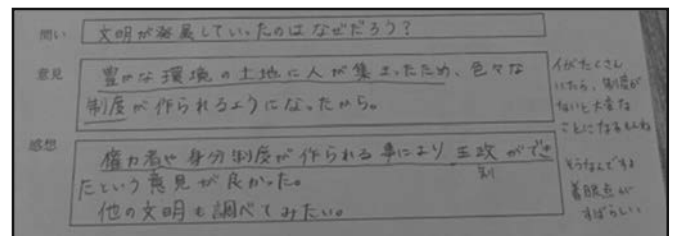 問い 文明が発展していったのはなぜだろう？
意見 豊かな環境の土地に人が集まったため、色々な
制度が作られるようになったから。
人がたくさん
いたら、制度が
ないと大変な
ことになるもんね
感想 権力者や身分制度が作られる事により王政ができ
制
たという意見が良かった。
他の文明も調べてみたい。
そうなんですよ
着眼点が
すばらしい